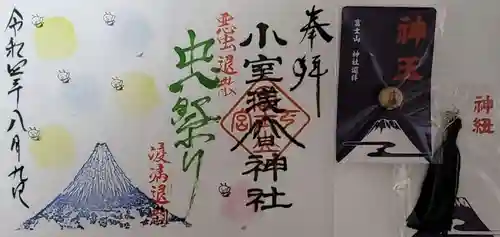 奉拝
小室浅間神社
悪虫退散
虫祭り
疫病退散
令和四年八月九日
富士山 神社遥拝
神玉
神紐